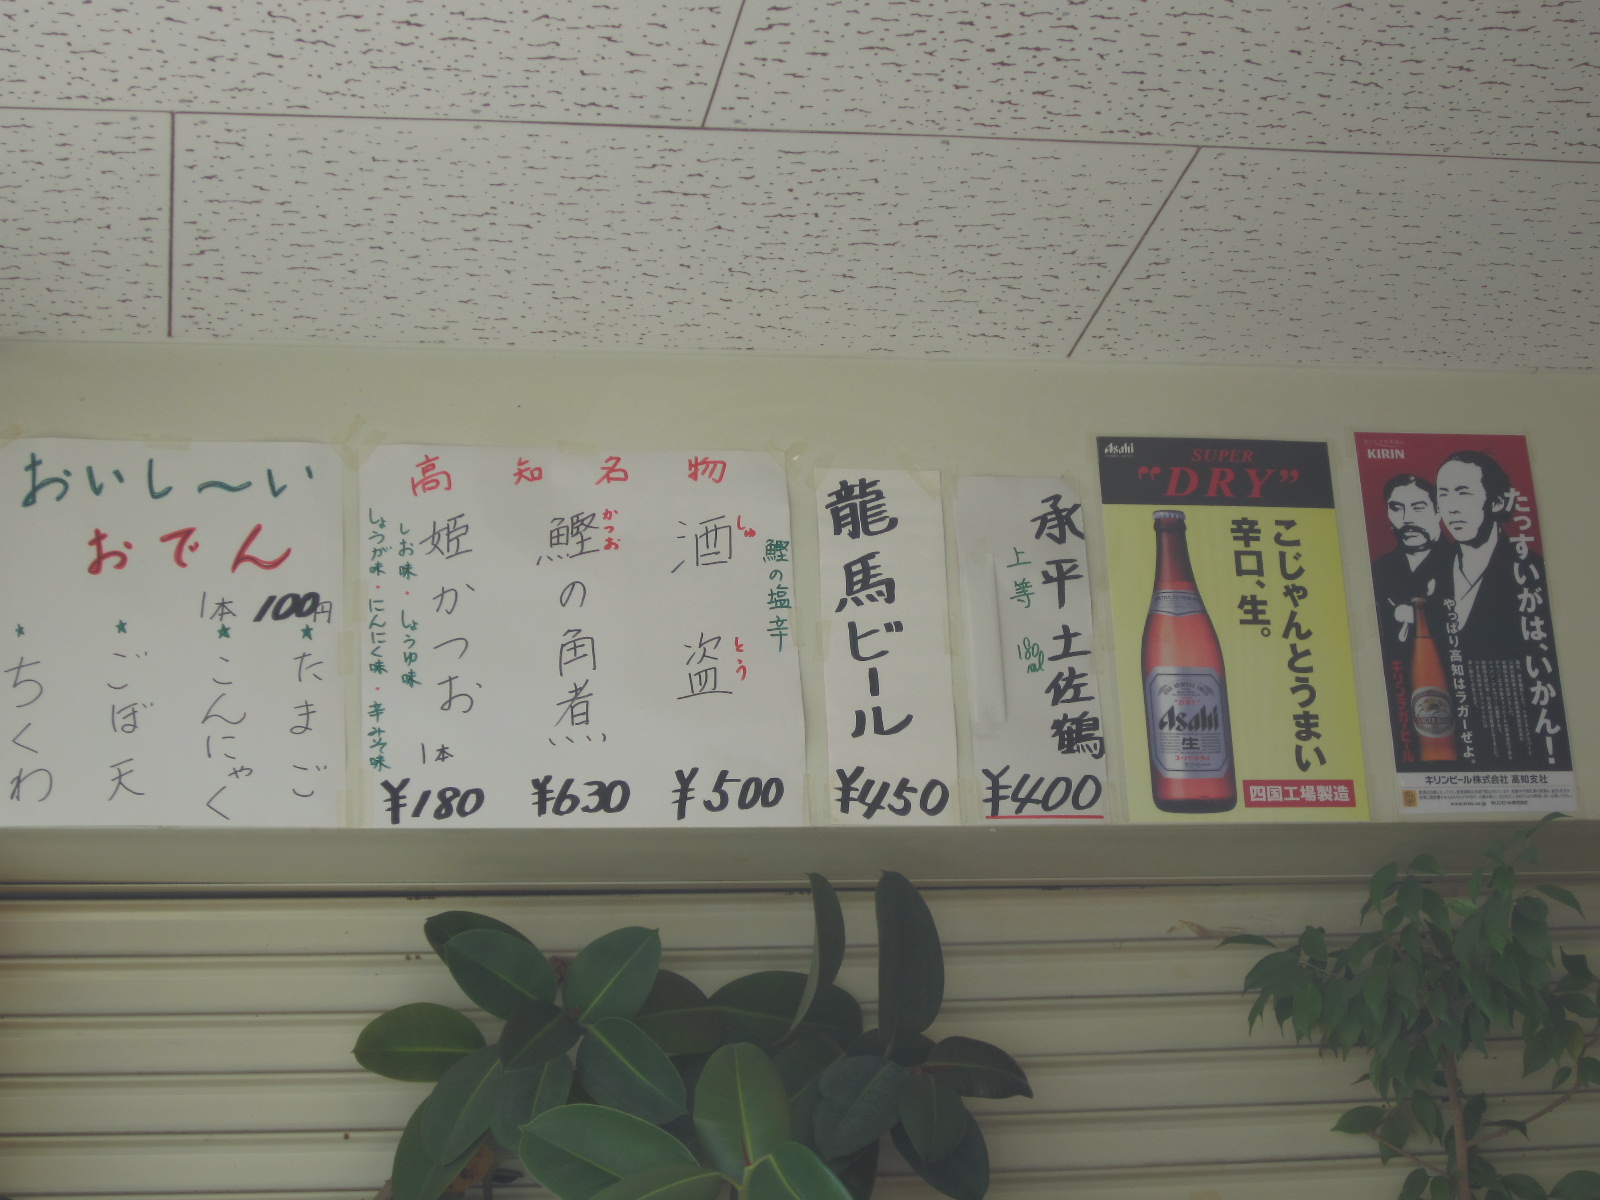 おいし〜い
おでん
1本 100円
★たまご
★こんにゃく
★ごぼ天
★ちくわ
高知名物
鰹の塩辛
酒盗
しゅ とう
¥500
鰹の角煮
かつお
¥630
姫かつお
しお味・しょうゆ味
しょうが味・にんにく味・辛みそ味
1本
¥180
龍馬ビール
¥450
承平土佐鶴
上等 180ml
¥400
Asahi
SUPER
"DRY"
こじゃんとうまい
辛口、生。
Asahi
生
四国工場製造
KIRIN
たっすいがは、いかん!
やっぱり高知はラガーぜよ。
キリンラガービール
キリンビール株式会社 高知支社